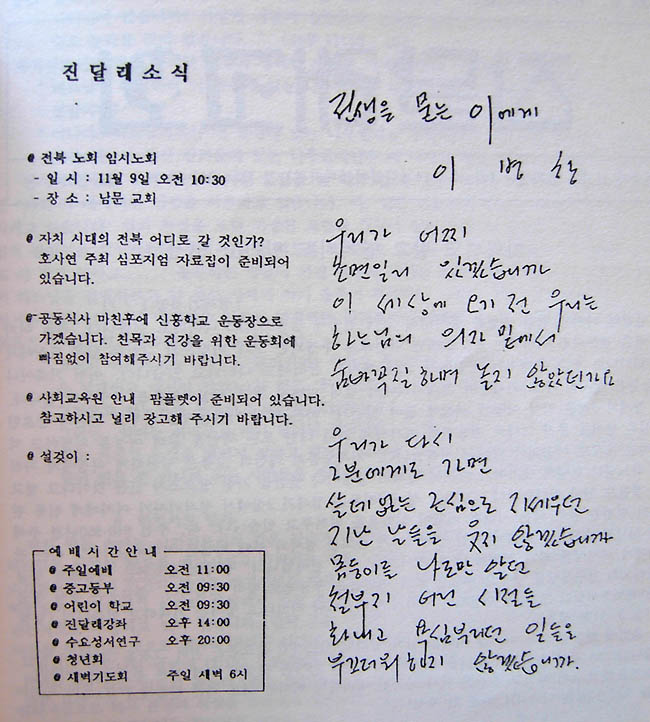 진달래소식
@ 전북 노회 임시노회
- 일 시 : 11월 9일 오전 10:30
- 장 소 : 남문 교회
@ 자치 시대의 전북 어디로 갈 것인가?
호사연 주최 심포지엄 자료집이 준비되어
있습니다.
@ 공동식사 마친후에 신흥학교 운동장으로
가겠습니다. 친목과 건강을 위한 운동회에
빠짐없이 참여해주시기 바랍니다.
@ 사회교육원 안내 팜플렛이 준비되어 있습니다.
참고하시고 널리 광고해 주시기 바랍니다.
@ 설겆이 :
예배시간안내
@ 주일예배 오전 11:00
@ 중고등부 오전 09:30
@ 어린이 학교 오전 09:30
@ 진달래강좌 오후 14:00
@ 수요성서연구 오후 20:00
@ 청년회
@ 새벽기도회 주일 새벽 6시
전생을 묻는 이에게
이 병 창
우리가 어찌
초면일리 있겠습니까
이 세상에 오기 전 우리는
하느님의 의자 밑에서
숨바꼭질 하며 놀지 않았던가요
우리가 다시
그분에게로 가면
쓸데없는 근심으로 지새우던
지난 날들을 웃지 않겠습니까
몸둥이를 나로만 알던
철부지 어린 시절을
화내고 욕심부리던 일들을
부끄러워 하지 않겠습니까.